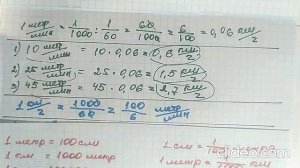 1 метр/мин = 1/1000 : 1/60 = 60/1000 = 6/100 = 0,06 км/г
1) 10 метр/мин = 10 · 0,06 = 0,6 км/г
2) 25 метр/мин = 25 · 0,06 = 1,5 км/г
3) 45 метр/мин = 45 · 0,06 = 2,7 км/г
1 км/г = 1000/60 = 100/6 метр/мин
1 метр = 100 см
1 см = 1/100
1 км = 1000 метр
1 метр =
videoac.com